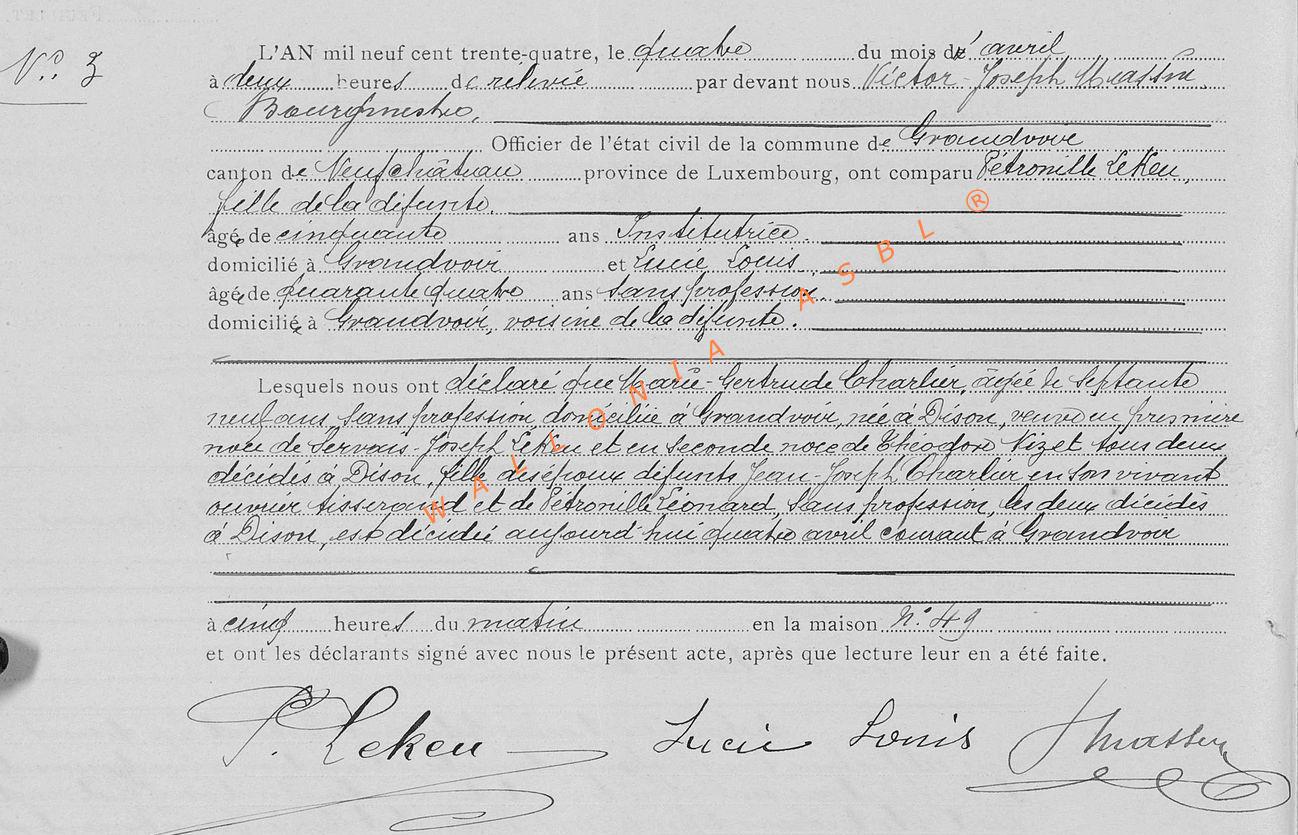 N° 3
L'AN mil neuf cent trente-quatre, le quatre du mois d' avril
à deux heures de relevée par devant nous Victor-Joseph Massin
Bourgmestre,
Officier de l'état civil de la commune de Grandvoir
canton de Neufchâteau province de Luxembourg, ont comparu Pétronille Lekeu,
fille de la défunte.
âgée de cinquante ans Institutrice.
domicilié à Grandvoir et Lucie Louis
âgée de quarante quatre ans sans profession,
domiciliée à Grandvoir, voisine de la défunte.
Lesquels nous ont déclaré que Marie-Gertrude Charlier, âgée de septante
neuf ans, sans profession, domiciliée à Grandvoir, née à Dison, veuve en première
noce de Servais-Joseph Lekeu et en seconde noce de Théodore Nizet tous deux
décédés à Dison, fille des époux défunts Jean-Joseph Charlier en son vivant
ouvrier tisserand et de Pétronille Léonard, sans profession, les deux décédés
à Dison, est décédée aujourd'hui quatre avril courant à Grandvoir
à cinq heures du matin en la maison N° 49
et ont les déclarants signé avec nous le présent acte, après que lecture leur en a été faite.
P. Lekeu Lucie Louis Massin
WALLONIA ASBL ®